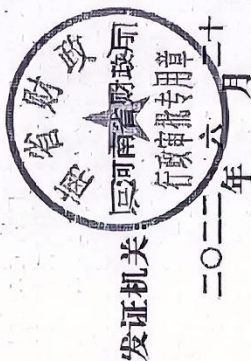 省财政
发证机关
河南省财政厅
行政审批专用章
二〇二二年六月二十